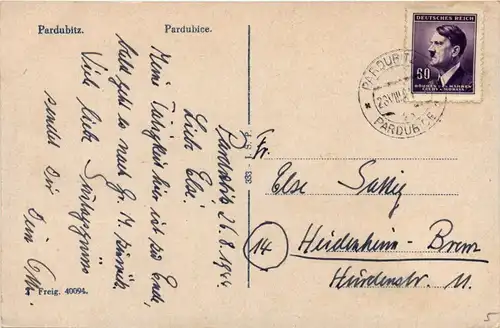 Pardubitz. Pardubice.
Pardubitz 26.8.1944
Liebe Else.
Meine Tätigkeit hier ist zu Ende,
bald geht es nach Gr. M. zurück.
Viele liebe
sendet Dir
Dein
Freig. 40094.
333 - L. S. P.
DEUTSCHES REICH
60
BÖHMEN u. MÄHREN
ČECHY a MORAVA
PARDUBITZ
PARDUBICE
Fr.
Else Sattig
14 Heidenheim - Brenz
Hürdenstr. 11.
5